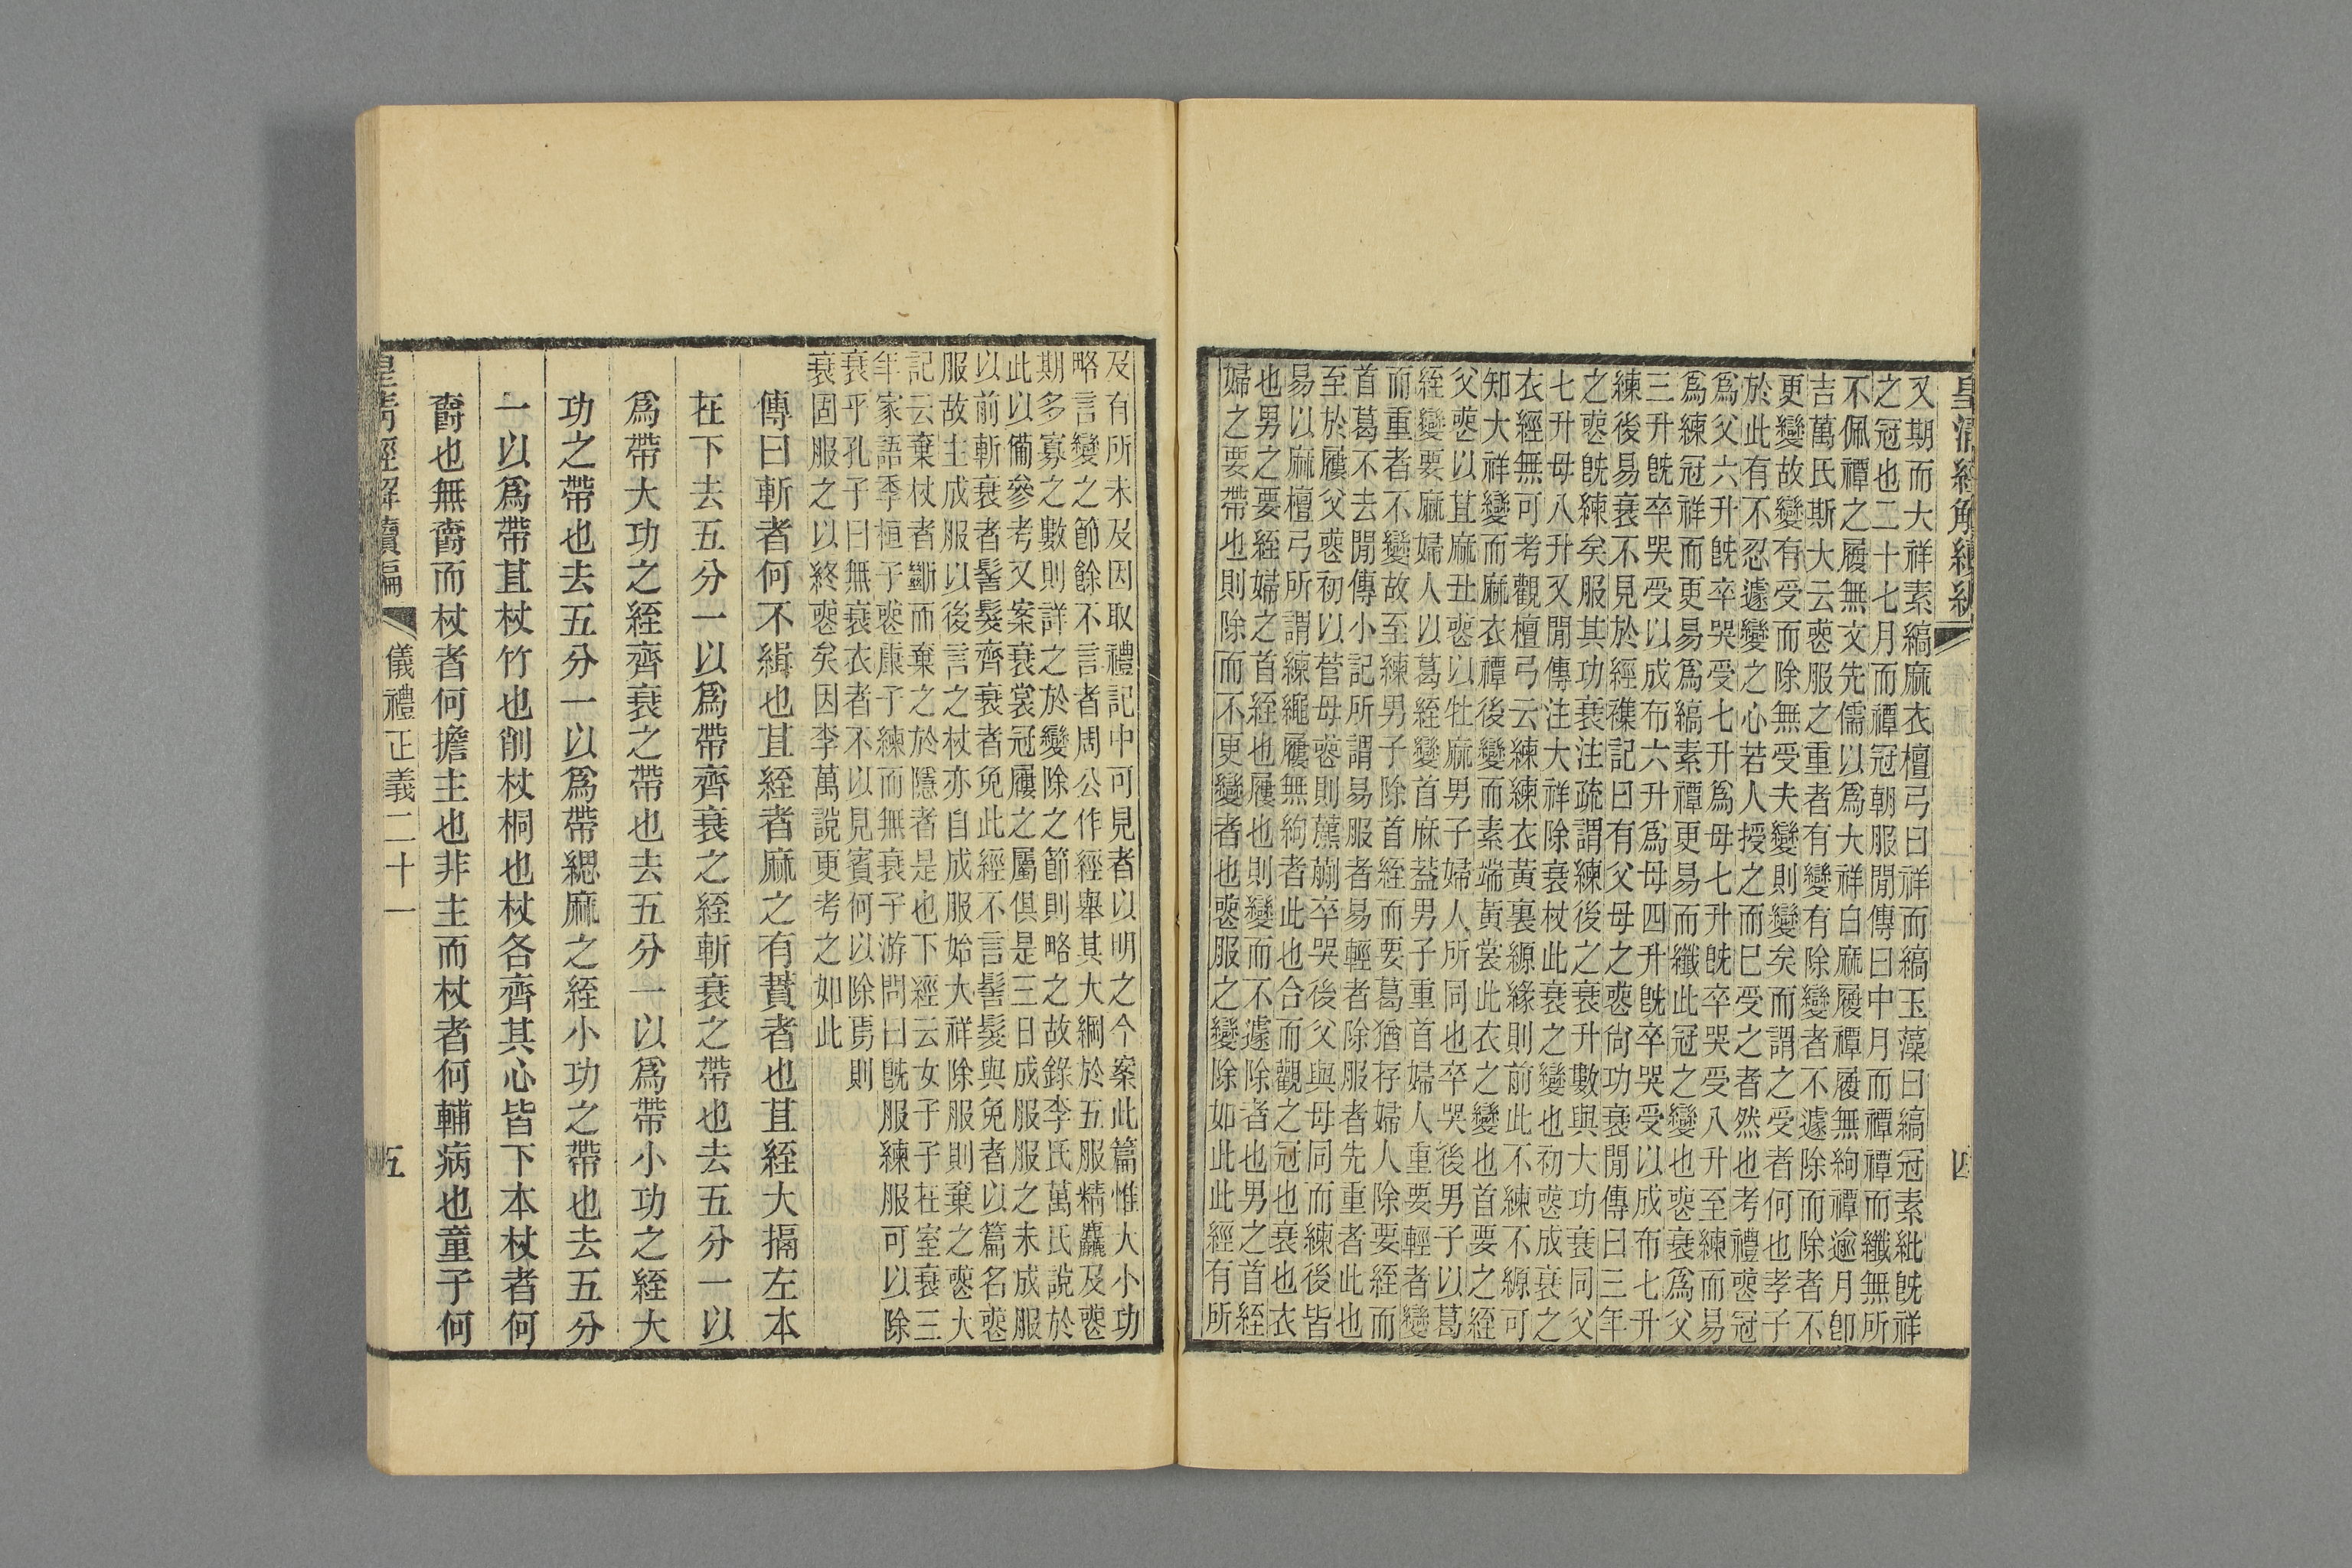 皇清經解續編
四
又期而大祥素縞麻衣檀弓曰祥而縞玉藻曰縞冠素紕旣祥
之冠也二十七月而禫冠朝服閒傳曰中月而禫禫而纖無所
不佩禫之履無文先儒以爲大祥白麻履禫履無絇禫逾月卽
吉萬氏斯大云喪服之重者有變有除變者不遽除而除者不
更變故變有受而除無受夫變則變矣而謂之受者何也孝子
於此有不忍遽變之心若人授之而已受之者然也考禮喪冠
爲父六升旣卒哭受七升爲母七升旣卒哭受八升至練而易
爲練冠祥而更易爲縞素禫更易而纖此冠之變也喪衰爲父
三升旣卒哭受以成布六升爲母四升旣卒哭受以成布七升
練後易衰不見於經襍記曰有父母之喪尙功衰閒傳曰三年
之喪旣練矣服其功衰注疏謂練後之衰升數與大功衰同父
七升母八升又閒傳注大祥除衰杖此衰之變也初喪成衰之
衣經無可考觀檀弓云練練衣黃裏縓緣則前此不練不縓可
知大祥變而麻衣禫後變而素端黃裳此衣之變也首要之絰
父喪以苴麻丑喪以牡麻男子婦人所同也卒哭後男子以葛
絰變要麻婦人以葛絰變首麻蓋男子重首婦人重要輕者變
而重者不變故至練男子除首絰而要葛猶存婦人除要絰而
首葛不去閒傳小記所謂易服者易輕者除服者先重者此也
至於屨父喪初以菅母喪則薦蒯卒哭後父與母同而練後皆
易以麻檀弓所謂練繩屨無絇者此也合而觀之冠也衰也衣
也男之要絰婦之首絰也屨也則變而不遽除者也男之首絰
婦之要帶也則除而不更變者也喪服之變除如此此經有所
及有所未及因取禮記中可見者以明之今案此篇惟大小功
略言變之節餘不言者周公作經舉其大綱於五服精麤及喪
期多寡之數則詳之於變除之節則略之故錄李氏萬氏說於
此以備參考又案衰裳冠屨之屬俱是三日成服服之未成服
以前斬衰者髻髮齊衰者免此經不言髻髮與免者以篇名喪
服故主成服以後言之杖亦自成服始大祥除服則棄之喪大
記云棄杖者斷而棄之於隱者是也下經云女子子在室衰三
年家語季桓子喪康子練而無衰子游問曰旣服練服可以除
衰乎孔子曰無衰衣者不以見賓何以除焉則
衰固服之以終喪矣因李萬說更考之如此
傳曰斬者何不緝也苴絰者麻之有蕡者也苴絰大搹左本
在下去五分一以爲帶齊衰之絰斬衰之帶也去五分一以
爲帶大功之絰齊衰之帶也去五分一以爲帶小功之絰大
功之帶也去五分一以爲帶緦麻之絰小功之帶也去五分
一以爲帶苴杖竹也削杖桐也杖各齊其心皆下本杖者何
爵也無爵而杖者何擔主也非主而杖者何輔病也童子何
皇清經解續編
儀禮正義二十一
五